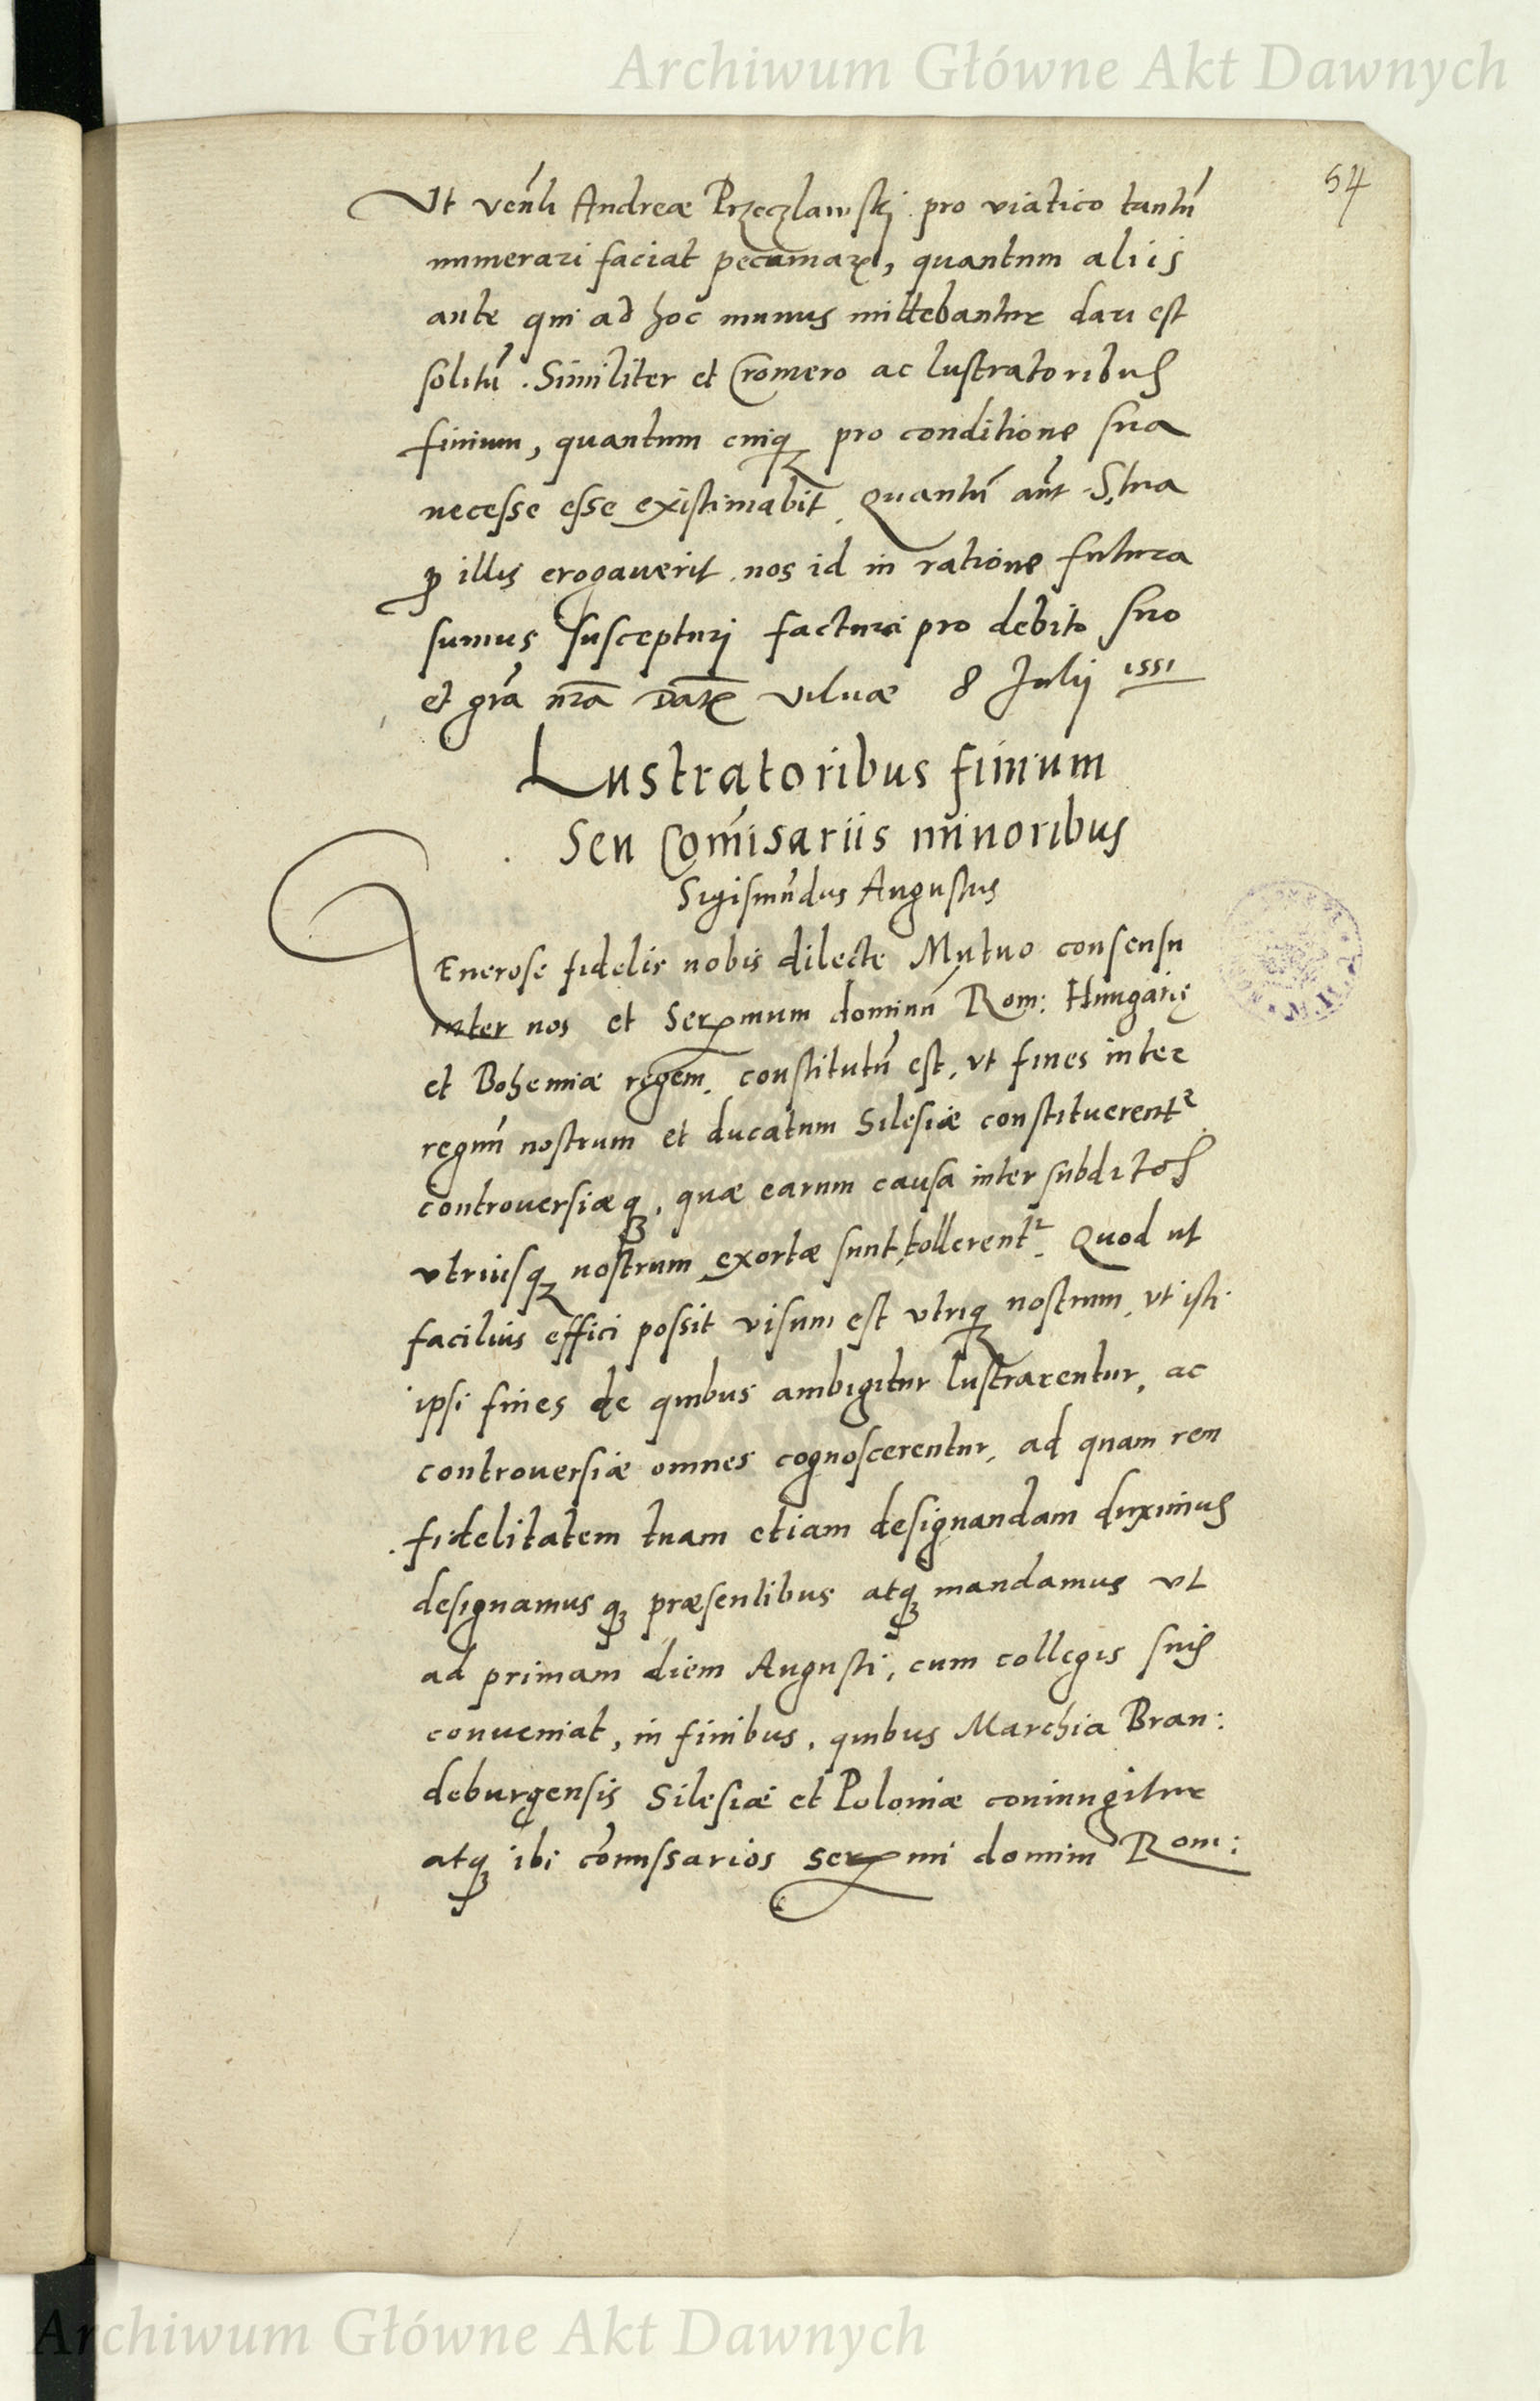 Archiwum Główne Akt Dawnych
54
Ut venli Andreæ Przeczlawskj pro viatico tantū
numerari faciat pecuniaꝝ, quantum aliis
ante qui ad hoc munus mittebantur dari est
solitū. Similiter et Cromero ac lustratoribus
finium, quantum cuiqꝫ pro conditione sua
necesse esse existimabit. Quantū aūt S. tua
ꝓ illis erogaverit, nos id in ratione futura
sumus suscepturj facturi pro debito suo
et grā nrā Datꝭ Vilnæ 8 Julij 1551
Lustratoribus finium
Seu Com̄isariis minoribus
Sigismūdus Augustus
GEnerose fidelis nobis dilecte Mutuo consensu
inter nos et Serꝫmum dominū Rom: Hungarię
et Bohemiæ regem, constitutū est, ut fines inter
regnū nostrum et ducatum Silesiæ constituerentᵣ
controversiæqꝫ, quæ earum causa inter subditos
utriusqꝫ nostrum exortæ sunt, tollerentᵣ. Quod ut
facilius effici possit visum est utriqꝫ nostrum, ut isti
ipsi fines de quibus ambigitur lustrarentur, ac
controversiæ omnes cognoscerentur, ad quam rem
fidelitatem tuam etiam designandam duximus
designamusqꝫ præsentibus atqꝫ mandamus ut
ad primam diem Augusti, cum collegis suis
conveniat, in finibus, quibus Marchia Bran:
deburgensis Silesiæ et Poloniæ coniungitur
atqꝫ ibi cōmissarios serꝫmi domini Rom:
Archiwum Główne Akt Dawnych